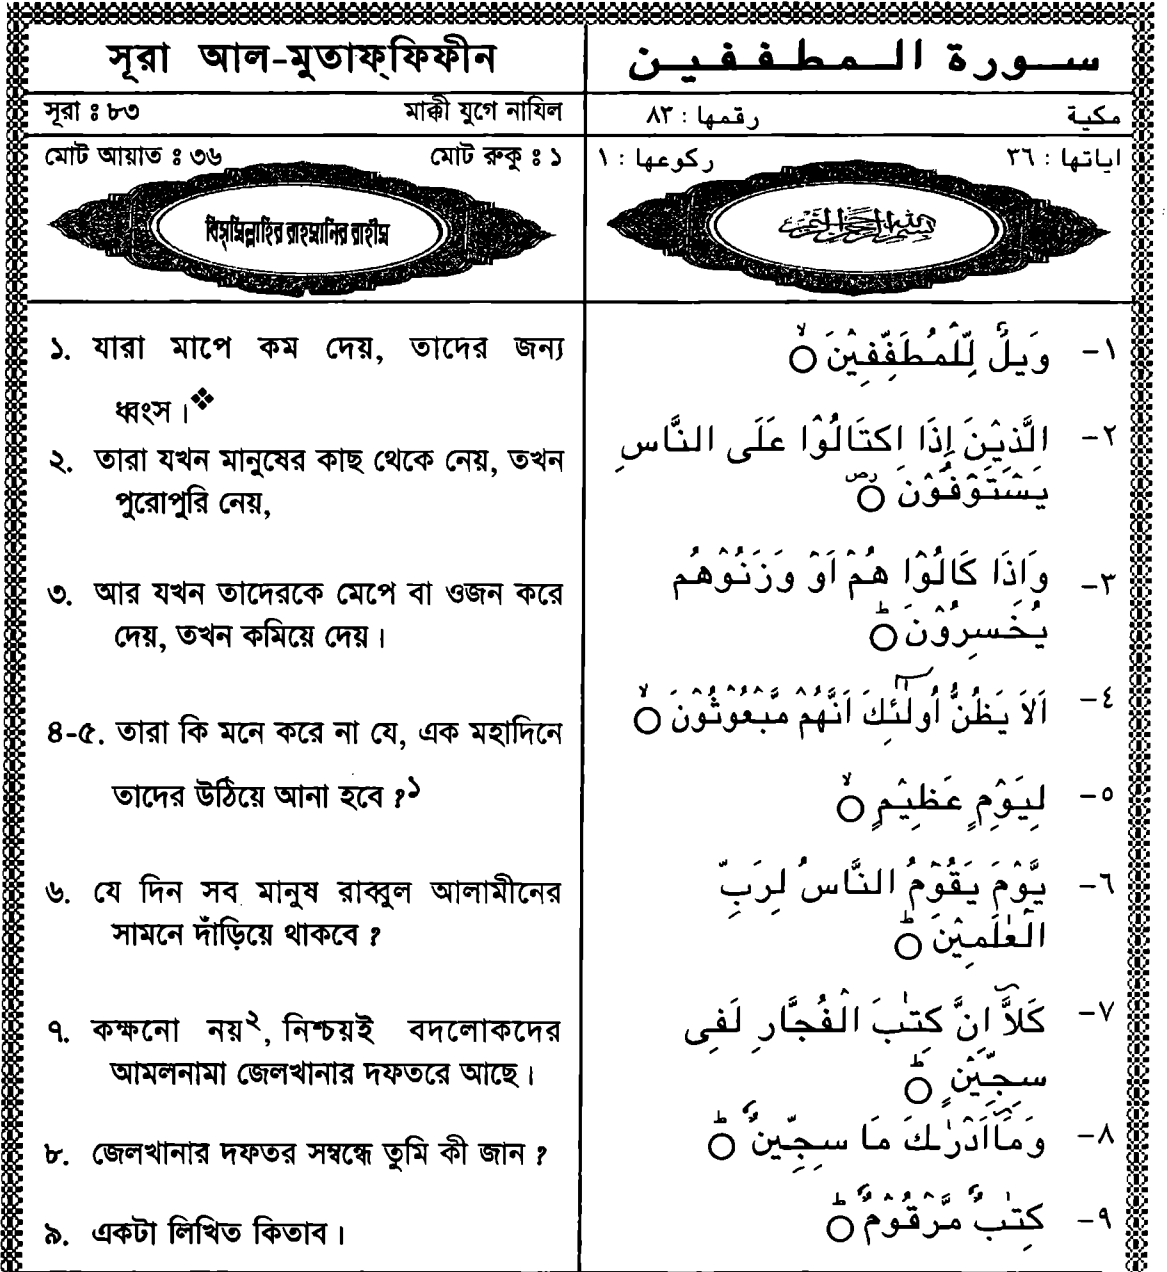 সূরা আল-মুতাফ্ফিফীন
সূরা ঃ ৮৩ মাক্কী যুগে নাযিল
মোট আয়াত ঃ ৩৬ মোট রুকু ঃ ১
বিস্মিল্লাহির রাহমানির রাহীম
১. যারা মাপে কম দেয়, তাদের জন্য
ধ্বংস।❖
২. তারা যখন মানুষের কাছ থেকে নেয়, তখন
পুরোপুরি নেয়,
৩. আর যখন তাদেরকে মেপে বা ওজন করে
দেয়, তখন কমিয়ে দেয়।
৪-৫. তারা কি মনে করে না যে, এক মহাদিনে
তাদের উঠিয়ে আনা হবে ?১
৬. যে দিন সব মানুষ রাব্বুল আলামীনের
সামনে দাঁড়িয়ে থাকবে ?
৭. কক্ষনো নয়২, নিশ্চয়ই বদলোকদের
আমলনামা জেলখানার দফতরে আছে।
৮. জেলখানার দফতর সম্বন্ধে তুমি কী জান ?
৯. একটা লিখিত কিতাব।
سورة المطففين
مكية رقمها : ٨٣
اياتها : ٣٦ ركوعها : ١
بسم الله الرحمن الرحيم
١- وَيْلٌ لِّلْمُطَفِّفِيْنَ ۙ
٢- الَّذِيْنَ اِذَا اكْتَالُوْا عَلَى النَّاسِ
يَسْتَوْفُوْنَ
٣- وَاِذَا كَالُوْا هُمْ اَوْ وَزَنُوْهُمْ
يُخْسِرُوْنَ ؕ
٤- اَلَا يَظُنُّ اُولٰٓئِكَ اَنَّهُمْ مَّبْعُوْثُوْنَ ۙ
٥- لِيَوْمٍ عَظِيْمٍ ۙ
٦- يَّوْمَ يَقُوْمُ النَّاسُ لِرَبِّ
الْعٰلَمِيْنَ ؕ
٧- كَلَّآ اِنَّ كِتٰبَ الْفُجَّارِ لَفِى
سِجِّيْنٍ ؕ
٨- وَمَآ اَدْرٰىكَ مَا سِجِّيْنٌ ؕ
٩- كِتٰبٌ مَّرْقُوْمٌ ؕ